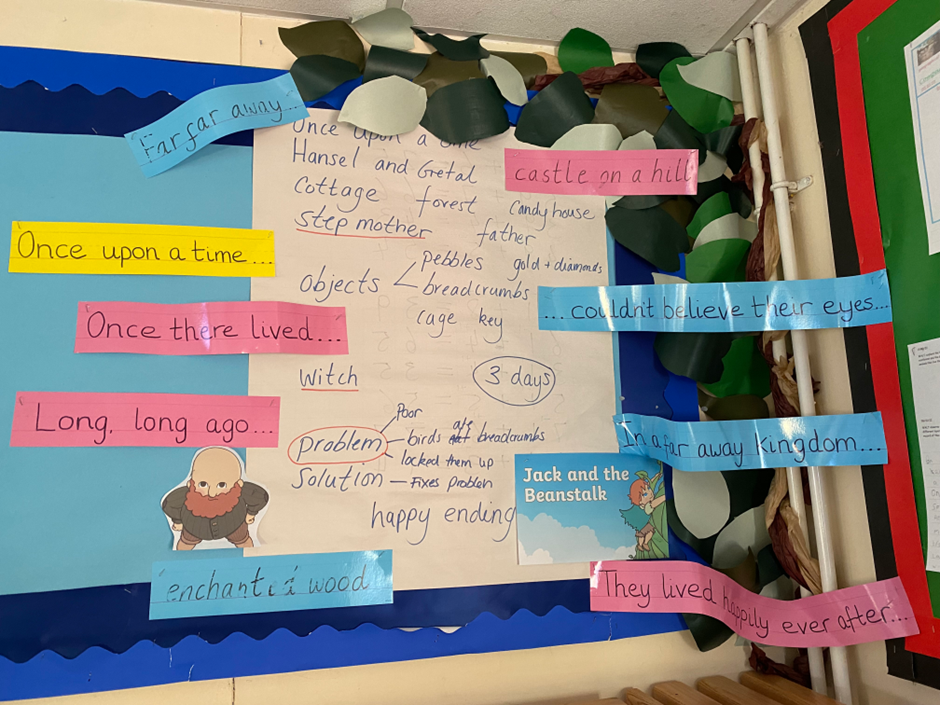 Far far away...
Once upon a time...
Once there lived...
Long, long ago...
enchanted wood
Once upon a time
Hansel and Gretal
Cottage forest candy house
Step mother father
objects pebbles gold + diamonds
breadcrumbs
cage key
witch 3 days
Poor
problem birds ate breadcrumbs
locked them up
Solution — Fixes problem
happy ending
castle on a hill
... couldn't believe their eyes...
In a far away Kingdom...
Jack and the
Beanstalk
They lived happily ever after...